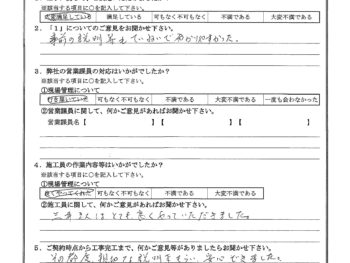 ※該当する項目に○を記入して下さい。
大変満足している 満足している 可もなく不可もなく 不満である 大変不満である
2.「1」についてのご意見をお聞かせ下さい。
事前の説明等もていねいで
3.弊社の営業課員の対応はいかがでしたか?
※該当する項目に○を記入して下さい。
①現場管理について
行き届いていた 可もなく不可もなく 不満である 大変不満である 一度も会わなかった
②営業課員に関して、何かご意見があればお聞かせ下さい。
営業課員名【 】【 】【 】
4.施工員の作業内容等はいかがでしたか?
※該当する項目に○を記入して下さい。
①現場管理について
可もなく不可もなく 不満である 大変不満である
②施工員に関して、何かご意見があればお聞かせ下さい。
とても良くやっていただきました。
5.ご契約時点から工事完工まで、何かご意見等がありましたらお聞かせ下さい。
親切な説明をもらい、安心できました。